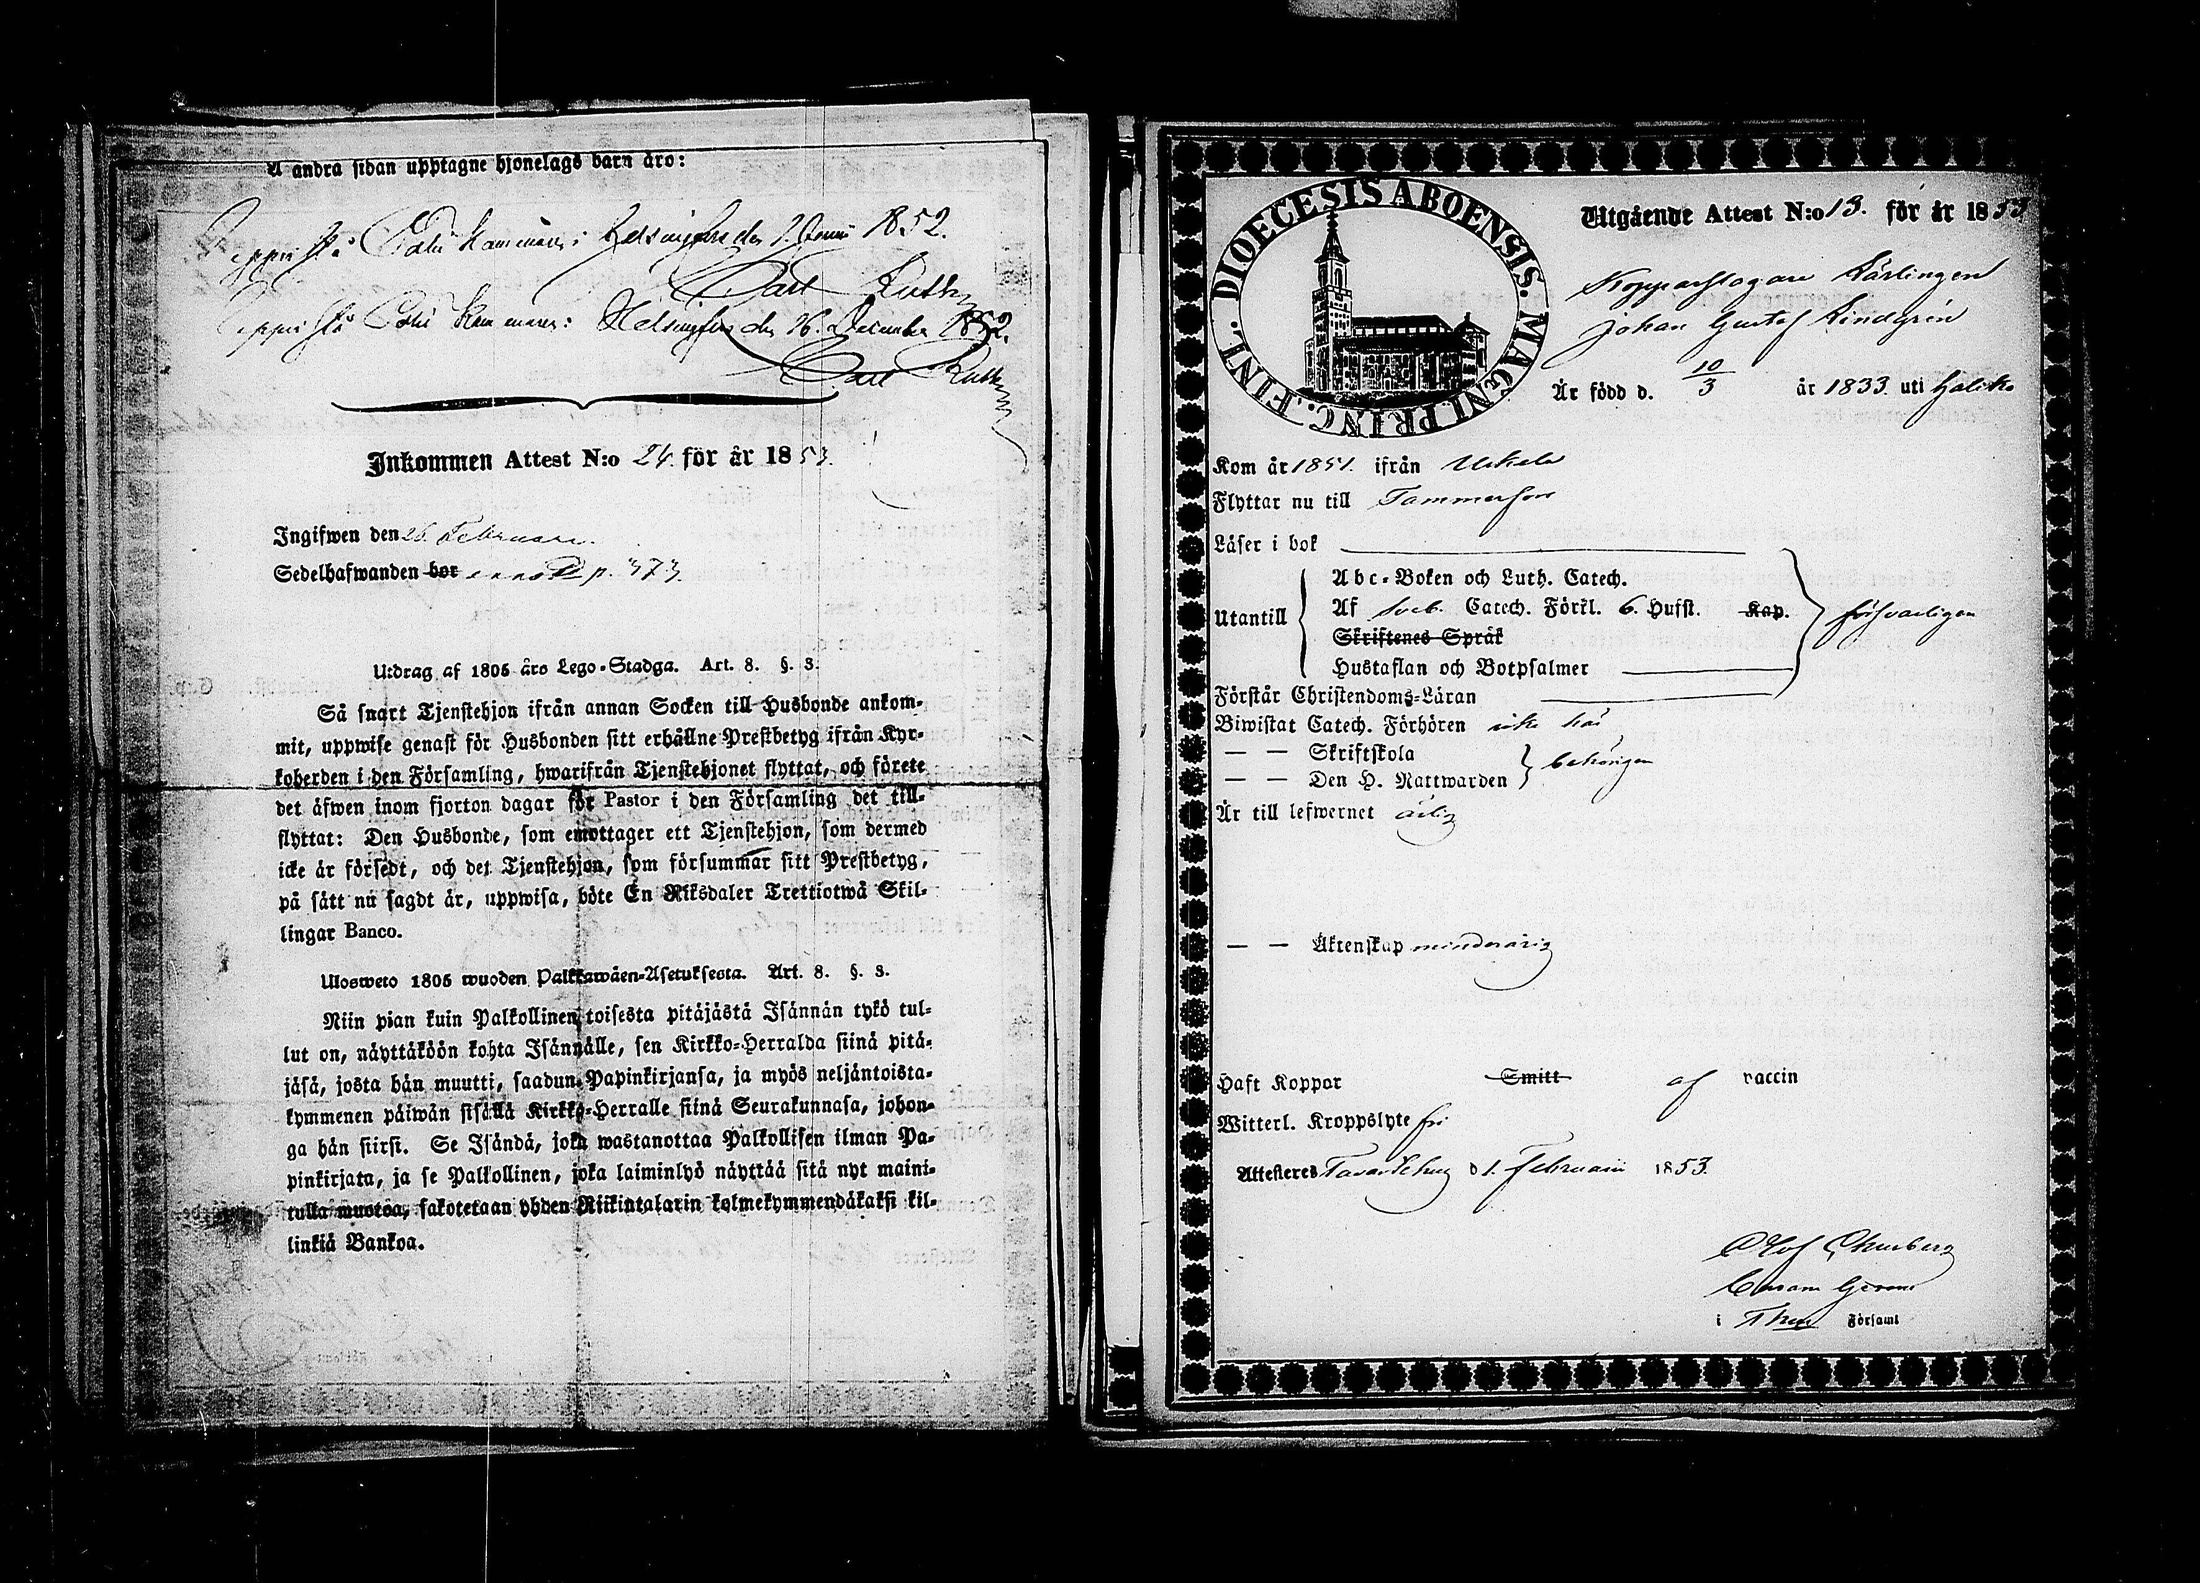 A andra sidan upptagne hjonelags barn äro:
Uppvist i Polis Kammaren i Helsingfors den 1 Junii 1852.
Carl Ruth
Uppvist i Polis Kammaren i Helsingfors den 16. December 1852.
Carl Ruth
Inkommen Attest N:o 24. för år 1853.
Ingifwen den 26 Februari.
Sedelhafwanden bor p. 373.
Utdrag af 1805 års Lego-Stadga. Art. 8. §. 3.
Så snart Tjenstehjon ifrån annan Socken till Husbonde ankom-
mit, uppwise genast för Husbonden sitt erhållne Prestbetyg ifrån Kyr-
koherden i den Församling, hwarifrån Tjenstehjonet flyttat, och förete
det äfwen inom fjorton dagar för Pastor i den Församling det till-
flyttat: Den Husbonde, som emottager ett Tjenstehjon, som dermed
icke är försedt, och det Tjenstehjon, som försummar sitt Prestbetyg,
på sätt nu sagdt är, uppwisa, böte En Riksdaler Trettiotwå Skil-
lingar Banco.
Ulosweto 1805 wuoden Palkkawäen-Asetuksesta. Art. 8. §. 3.
Niin pian kuin Palkollinen toisesta pitäjästä Isännän tykö tul-
lut on, näyttäköön kohta Isännälle, sen Kirkko-Herralda siinä pitä-
jäsä, josta hän muutti, saadun Papinkirjansa, ja myös neljäntoista-
kymmenen päiwän sisällä Kirkko-Herralle siinä Seurakunnasa, johon-
ga hän siirsi. Se Isändä, joka wastanottaa Palkollisen ilman Pa-
pinkirjata, ja se Palkollinen, joka laiminlyö näyttää sitä nyt maini-
tulla muotoa, sakotetaan yhden Riikintalarin kolmekymmendäkaksi kil-
linkiä Bankoa.
DIOECESIS ABOENSIS. MAGNI PRINC. FINL.
Utgående Attest N:o 13. för år 1853
Kopparslagare Lärlingen
Johan Gustaf Lindgrén
Är född d. 10/3 år 1833. uti Haliko
Kom år 1851. ifrån Uskela
Flyttar nu till Tammerfors
Läser i bok
Utantill
Abc-Boken och Luth. Catech.
Af Sveb. Catech. Förkl. 6. Hufst. Kap.
Skriftenes Språk
Hustaflan och Botpsalmer
försvarligen
Förstår Christendoms-Läran
Biwistat Catech. Förhören icke här
— — Skriftskola
— — Den H. Nattwarden
behörigen
Är till lefwernet ärlig
— — Äktenskap minderårig
Haft Koppor Smitt af vaccin
Witterl. Kroppslyte fri
Attesteres Tavastehus d 1. Februarii 1853.
Olof
i Församl